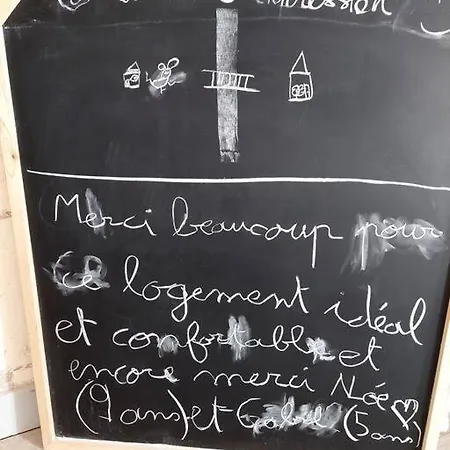 impression
Merci beaucoup pour
ce logement idéal
et comfortable et
encore merci Noé
(9 ans) et Gabriel (5 ans)